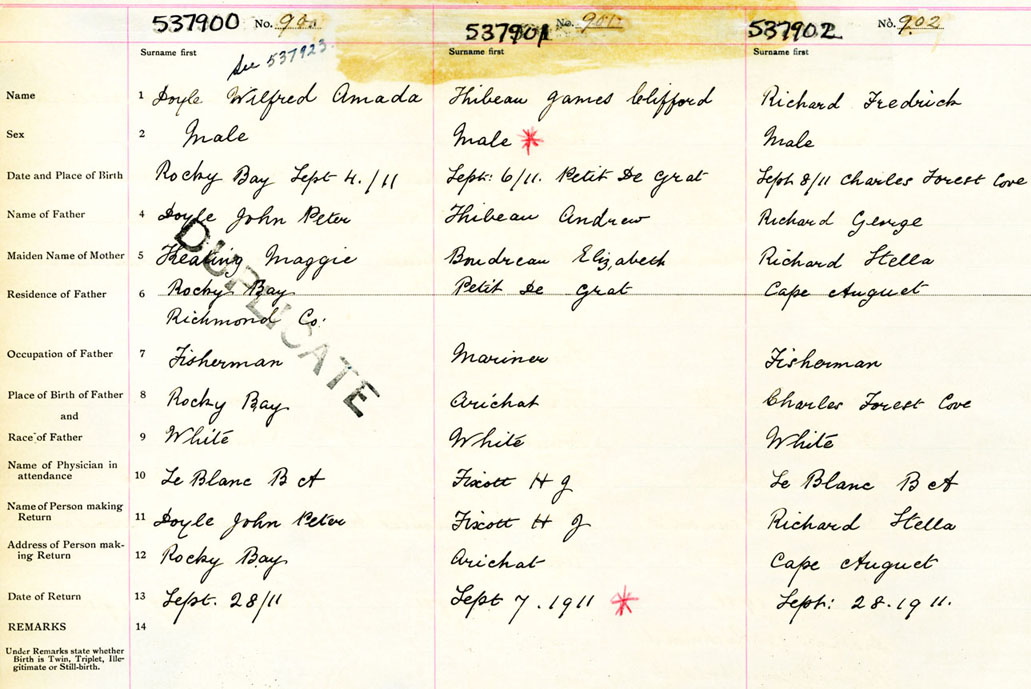 537900 No. 900 537901 No. 901 537902 No. 902
Surname first Surname first Surname first
See 537923
Name 1 Doyle Wilfred Amada Thibeau James Clifford Richard Fredrick
Sex 2 Male Male * Male
Date and Place of Birth Rocky Bay Sept 4./11 Sept: 6/11. Petit De Grat Sept 8/11 Charles Forest Cove
Name of Father 4 Doyle John Peter Thibeau Andrew Richard George
Maiden Name of Mother 5 Keating Maggie Boudreau Elizabeth Richard Stella
Residence of Father 6 Rocky Bay Petit De Grat Cape Auguet
Richmond Co:
DUPLICATE
Occupation of Father 7 Fisherman Mariner Fisherman
Place of Birth of Father 8 Rocky Bay Arichat Charles Forest Cove
and
Race of Father 9 White White White
Name of Physician in
attendance 10 Le Blanc B A Fixott H J Le Blanc B A
Name of Person making
Return 11 Doyle John Peter Fixott H J Richard Stella
Address of Person mak-
ing Return 12 Rocky Bay Arichat Cape Auguet
Date of Return 13 Sept. 28/11 Sept 7. 1911 * Sept: 28.1911.
REMARKS 14
Under Remarks state whether
Birth is Twin, Triplet, Ille-
gitimate or Still-birth.